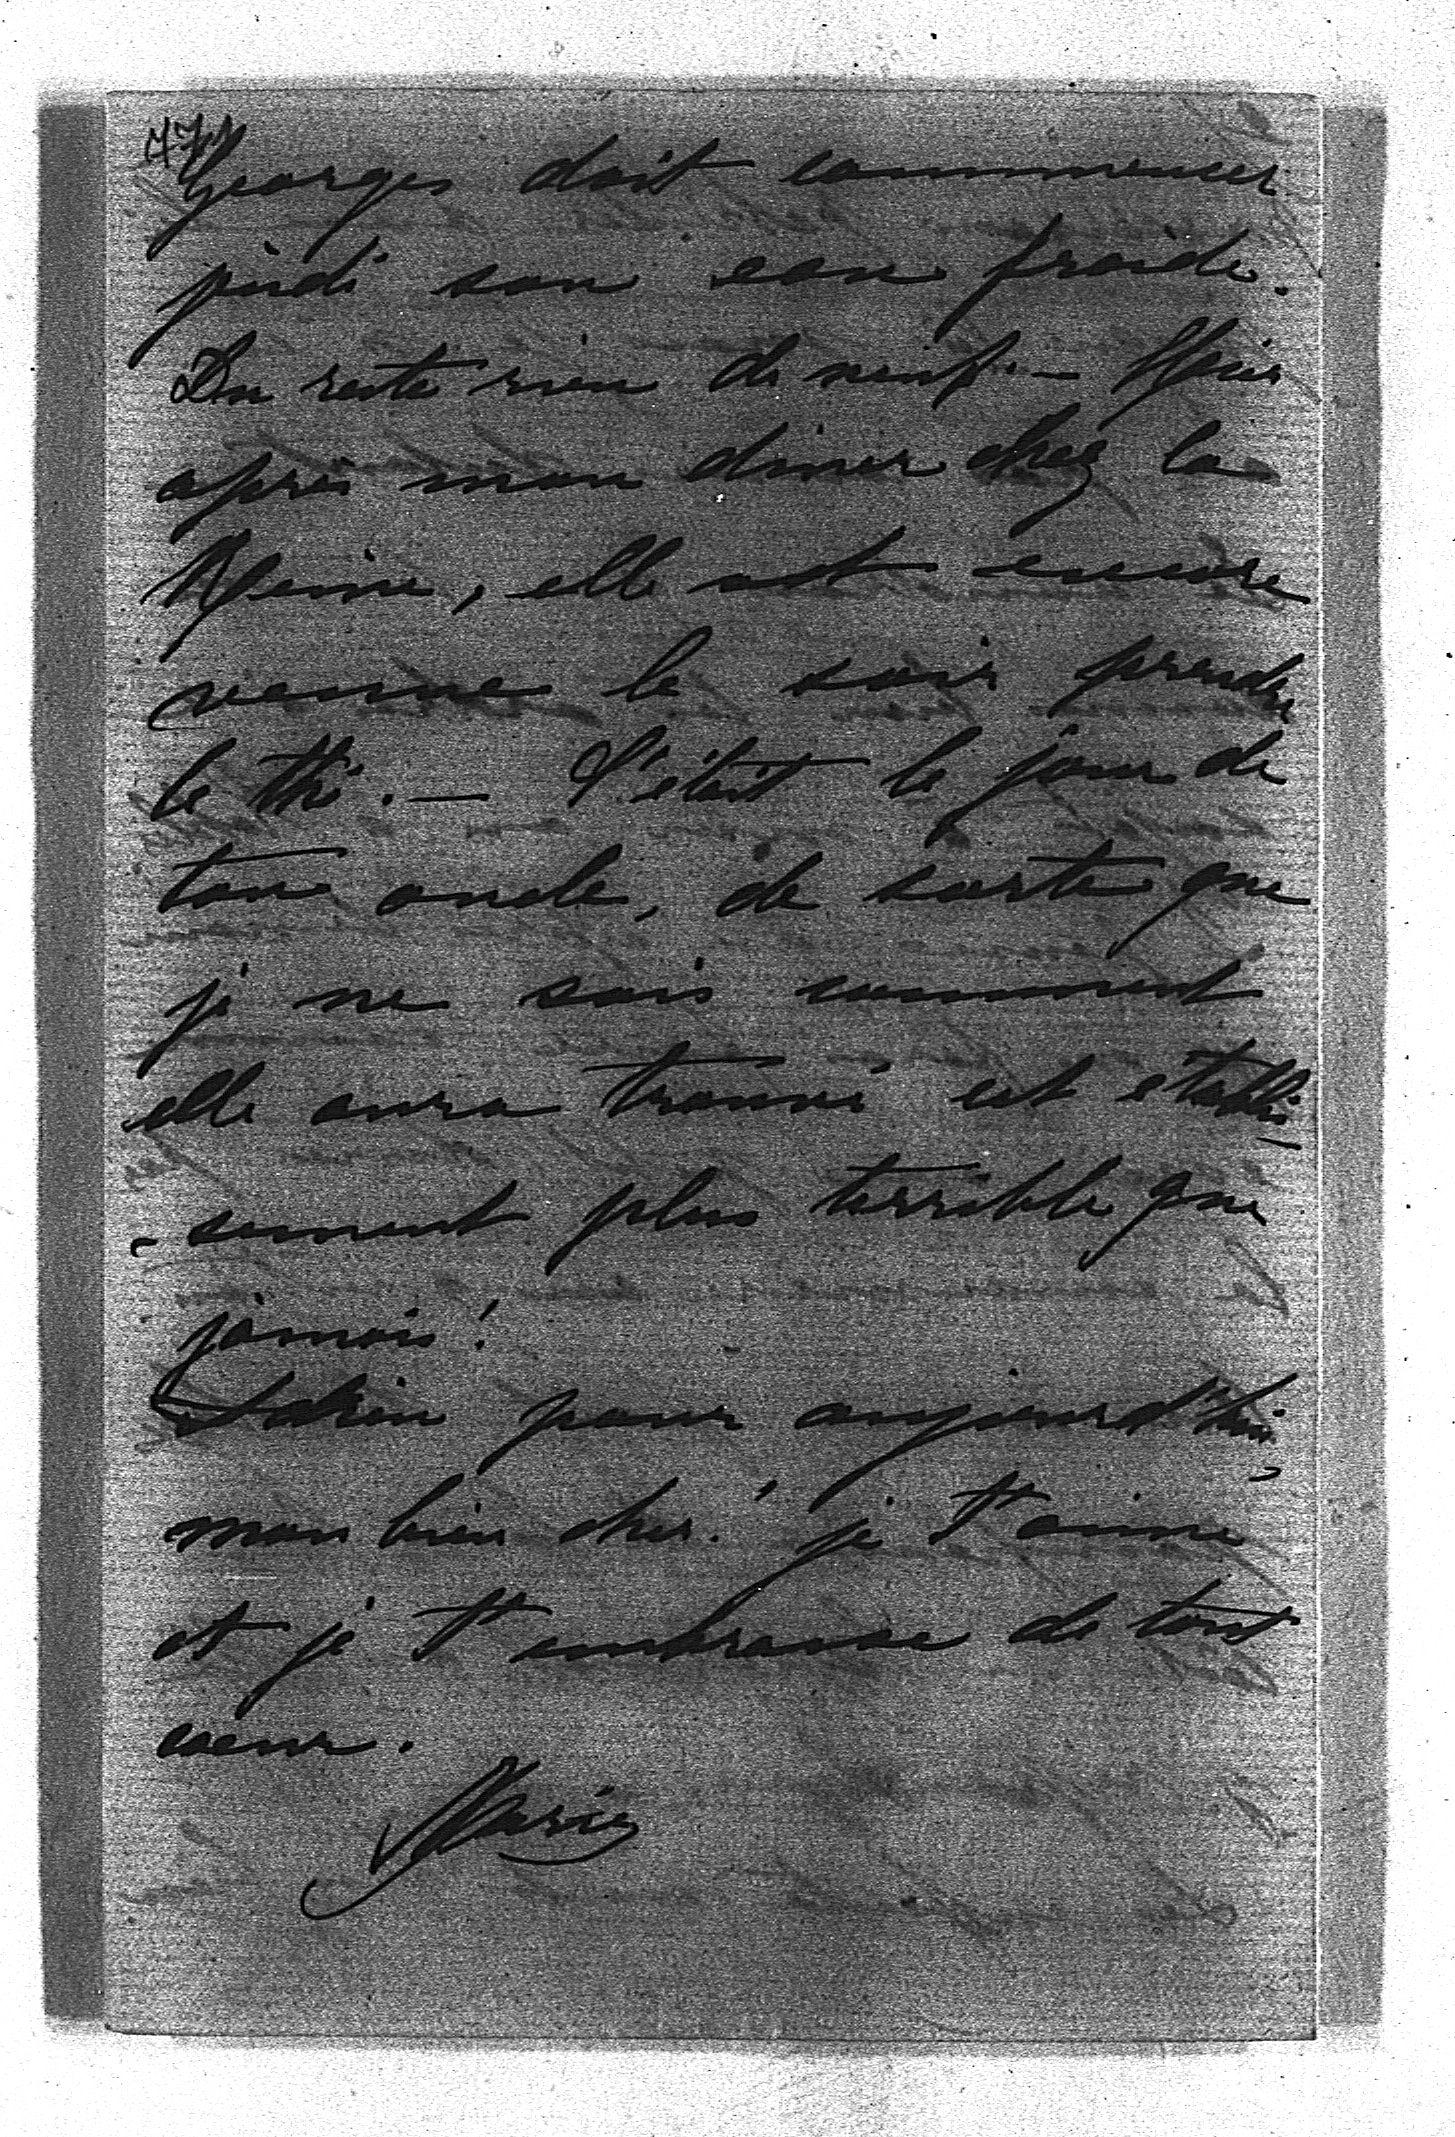 Georges doit commencer
jeudi son eau froide.
Du reste rien de neuf. — Hier
après mon diner chez la
Reine, elle est encore
venue le soir prendre
le thé. — C'était le jour de
ton oncle, de sorte que
je ne sais comment
elle aura trouvé cet établis-
-sement plus terrible que
jamais!
Adieu pour aujourd'hui,
mon bien cher! je t'aime
et je t'embrasse de tout
coeur.
Marie